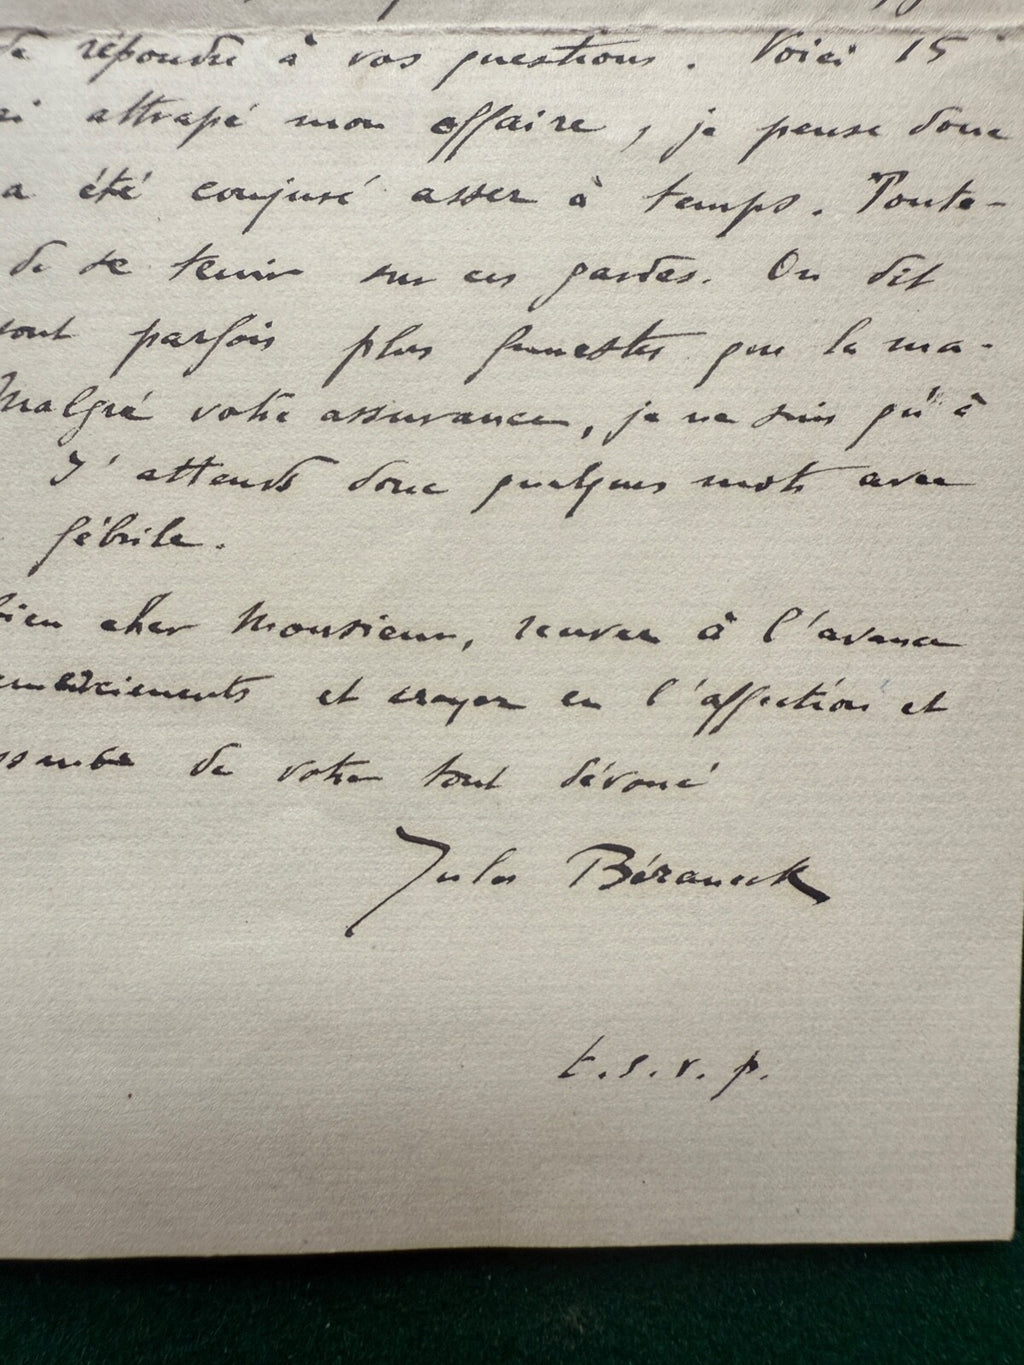 de répondre à vos questions. Voici 15
ai attrapé mon affaire, je pense donc
a été conjuré assez à temps. Toute-
de se tenir sur ses gardes. On dit
sont parfois plus funestes que la ma-
Malgré votre assurance, je ne suis qu'à
J'attends donc quelques mots avec
fébrile.
bien cher Monsieur, recevez à l'avance
remerciements et croyez en l'affection et
de votre tout dévoué
Jules Béraneck
t.s.v.p.